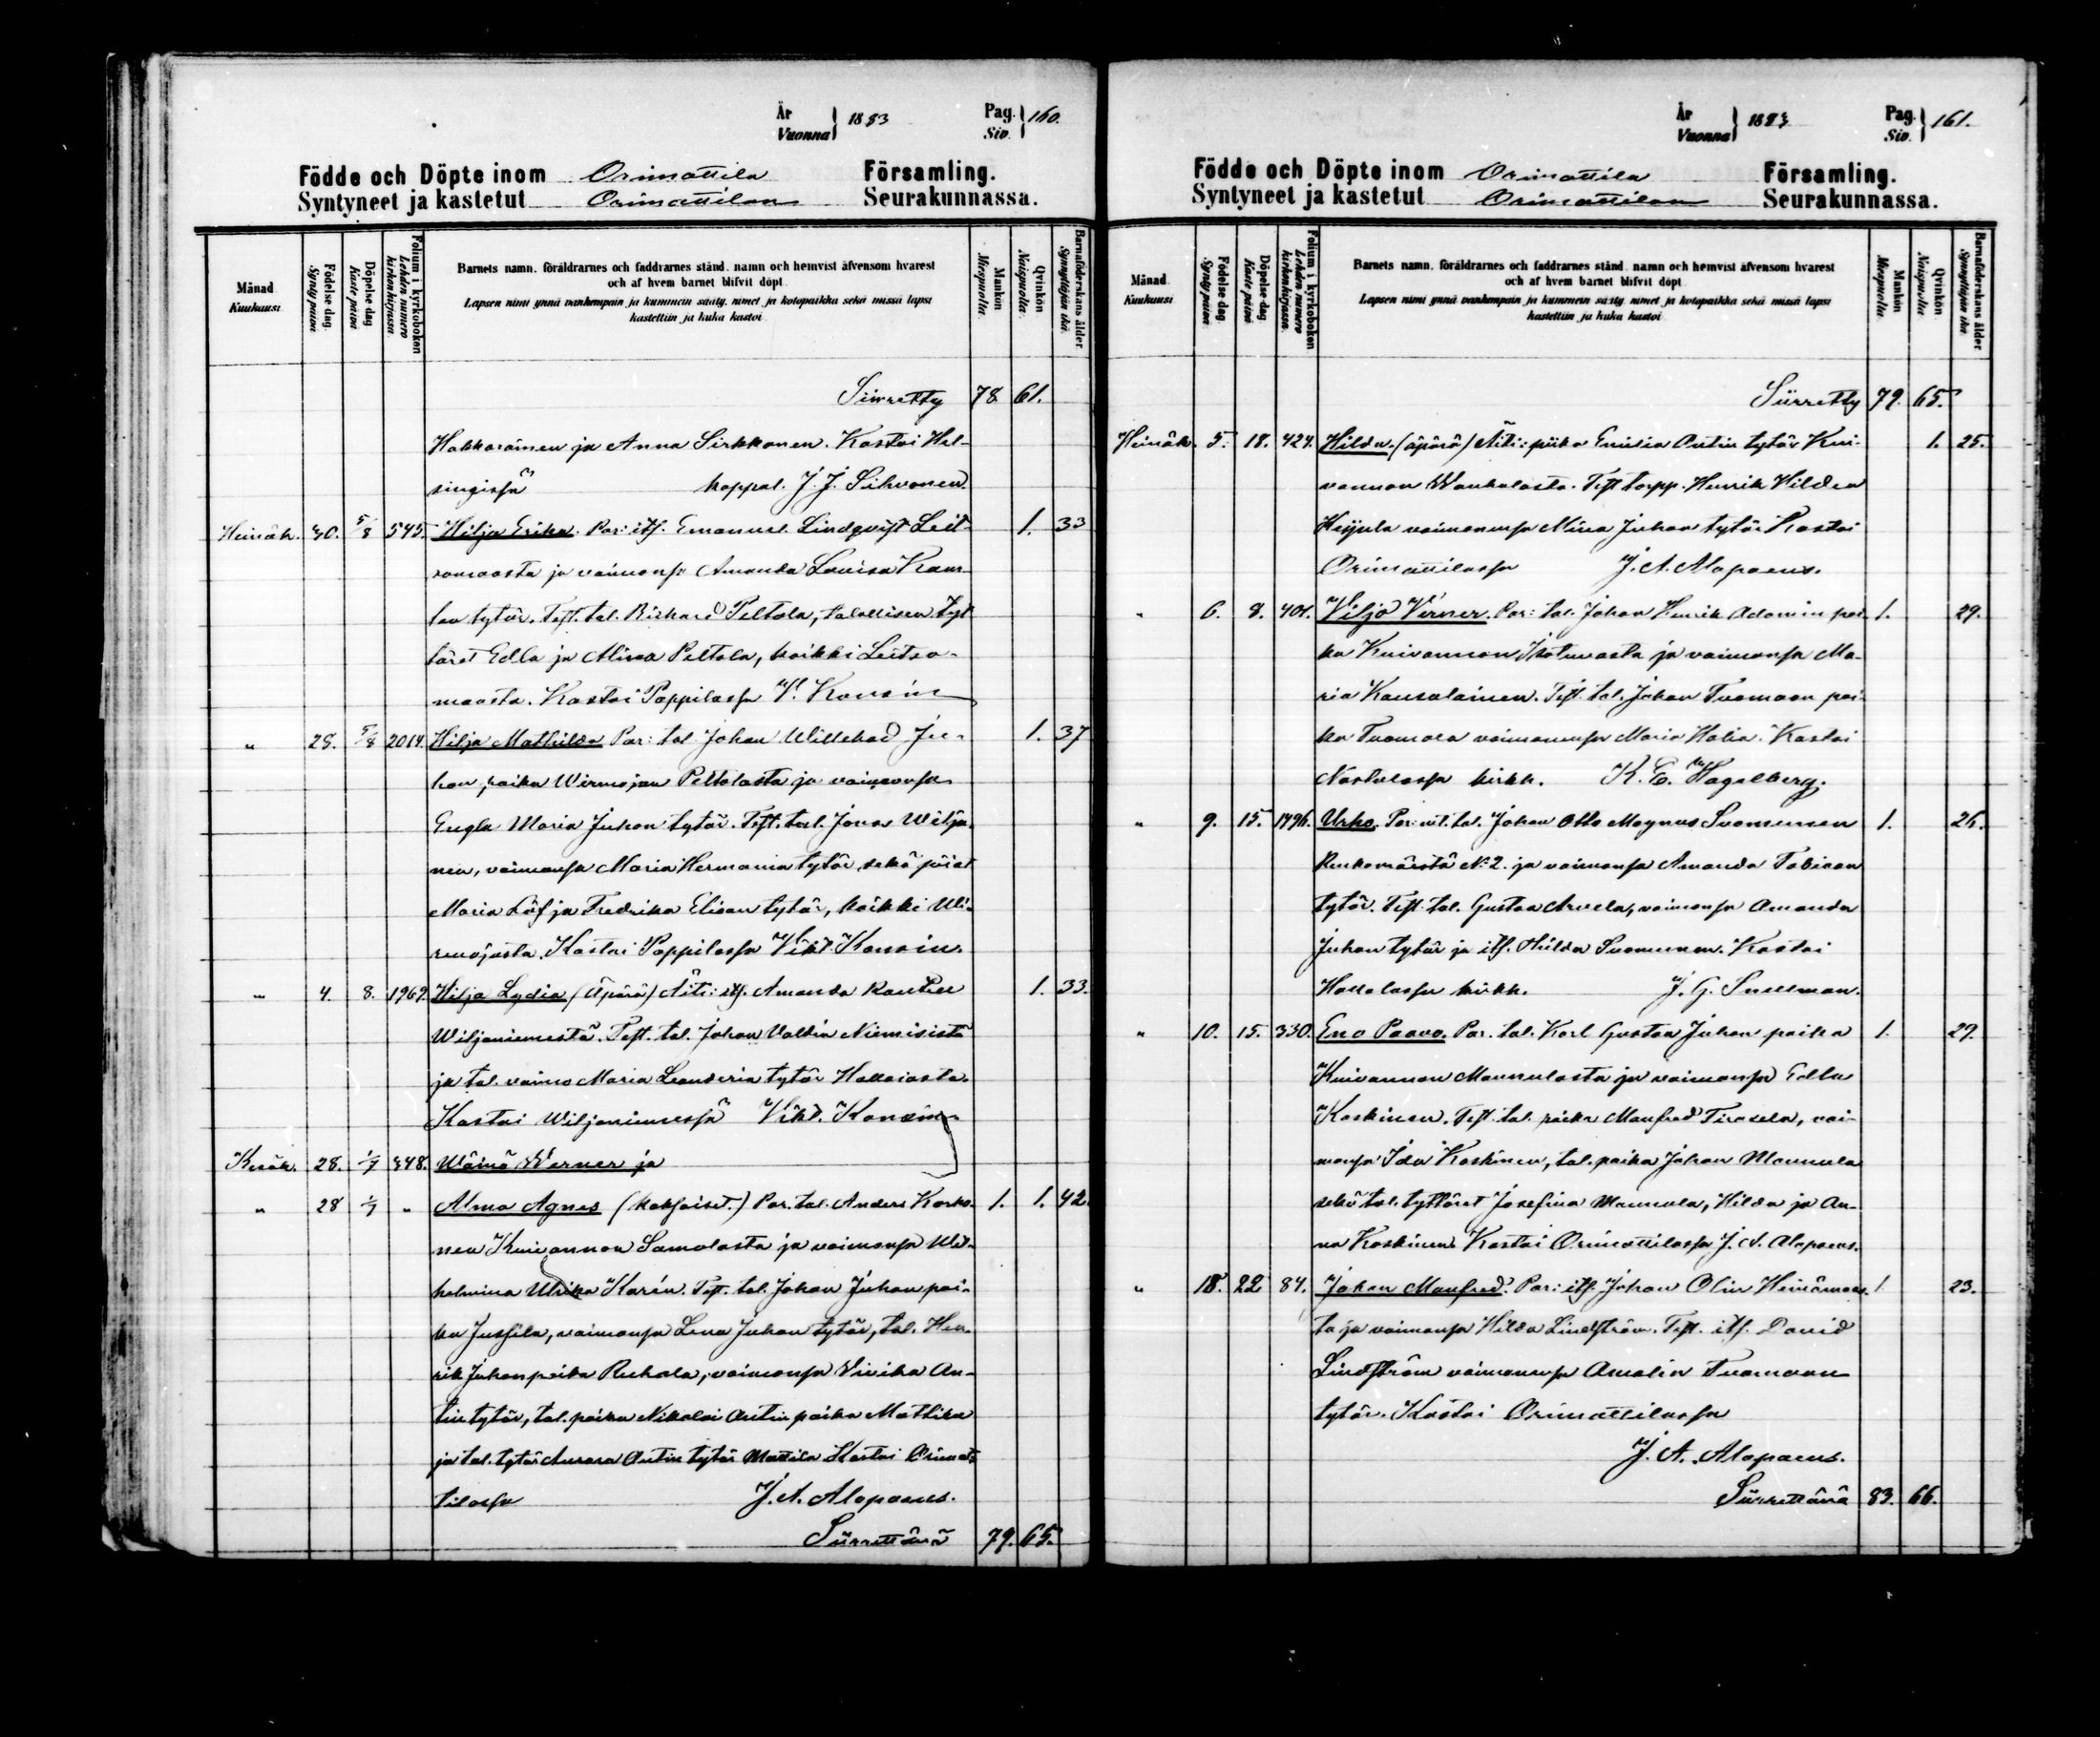 År
Vuonna } 1883
Pag.
Siv. } 160.
Födde och Döpte inom Orimattila Församling.
Syntyneet ja kastetut Orimattilan Seurakunnassa.
Månad Kuukausi
Födelse dag Synty päivä
Döpelse dag Kaste päivä
Folium i kyrkoboken Lehden numero kirkonkirjassa
Barnets namn, föräldrarnes och faddrarnes stånd, namn och hemvist äfvensom hvarest
och af hvem barnet blifvit döpt
Lapsen nimi ynnä vanhempain ja kummein sääty, nimet ja kotopaikka sekä missä lapsi
kastettiin ja kuka kastoi
Mankön Miespuolia
Qvinkön Naispuolia
Barnaföderskans ålder Synnyttäjän ikä
Siirretty 78 61.
Hakkaränen ja Anna Sirkkanen. Kastoi Hel-
singissä kappal. J. J. Sihvonen.
Heinäk. 30. 5/8 545. Hilja Erika. Par: its. Emanuel Lindqvist Leit-
somaasta ja vaimonsa Amanda Lovisa Kaar-
lon tytär. Test. tal. Rickard Peltola, talollisen tyt-
täret Edla ja Miina Peltola, kaikki Leitso-
maasta. Kastoi Pappilassa V. Konsin 1. 33
„ 28. 5/8 2014. Hilja Mathilda Par: tal. Johan Willehad Ju-
hon poika Wirenojan Peltolasta ja vaimonsa
Engla Maria Juhon tytär. Test. tal. Jonas Wilja-
nen, vaimonsa Maria Hermanin tytär, sekä piiat
Maria Löf ja Fredrika Elian tytär, kaikki Wi-
renojasta. Kastoi Pappilassa Vikt. Konsin. 1. 37
„ 4. 8. 1969. Hilja Lydia (Äpärä) Äiti: its. Amanda Rautell
Wiljaniemestä. Test. tal. Johan Valdin Niemisistä
ja tal. vaimo Maria Leanderin tytär
Kastoi Wiljaniemessä Vikt. Konsin 1. 33.
Kesäk. 28. 1/7 348. Wäinö Werner ja
„ 28 1/7 „ Alma Agnes (kaksoiset.) Par. tal. Anders Korho-
nen Kuivannon Samolasta ja vaimonsa Wil-
helmina Ulrika Karén. Test. tal. Johan Juhon poi-
ka Jussila, vaimonsa Lena Juhon tytär, tal. Hen-
rik Juhon poika Ruhala, vaimonsa Vivika An-
tin tytär, tal. poika Nikolai Antin poika Mattila
ja tal. tytär Aurora Antin tytär Mattila Kastoi Orimat-
tilassa J. A. Alopaeus. 1. 1. 42.
Siirrettävä 79. 65.
År
Vuonna } 1883
Pag.
Siv. } 161.
Födde och Döpte inom Orimattila Församling.
Syntyneet ja kastetut Orimattilan Seurakunnassa.
Månad Kuukausi
Födelse dag Synty päivä
Döpelse dag Kaste päivä
Folium i kyrkoboken Lehden numero kirkonkirjassa
Barnets namn, föräldrarnes och faddrarnes stånd, namn och hemvist äfvensom hvarest
och af hvem barnet blifvit döpt
Lapsen nimi ynnä vanhempain ja kummein sääty, nimet ja kotopaikka sekä missä lapsi
kastettiin ja kuka kastoi
Mankön Miespuolia
Qvinkön Naispuolia
Barnaföderskans ålder Synnyttäjän ikä
Siirretty 79. 65.
Heinäk. 5. 18. 424. Hilda. (äpärä) Äiti: piika Emilia Antin tytär Kui-
vannon Wanhalasta. Test. torpp. Henrik Hilden
vaimonensa Miina Juhon tytär Kastoi
Orimattilassa J. A. Alopaeus. 1. 25.
„ 6. 8. 401. Viljo Verner. Par: tal. Johan Henrik Adamin poi-
ka Kuivannon Isotuvasta ja vaimonsa Ma-
ria Kausalainen. Test. tal. Johan Tuomaan poi-
ka Tuomola vaimonensa Maria Halin. Kastoi
Nastolassa kirkk. K. E. Hagelberg. 1. 29.
„ 9. 15. 1796. Urho. Par: vl. tal. Johan Otto Magnus Suominen
N:o 2. ja vaimonsa Amanda Tobiaan
tytär. Test. tal. Gustaa Arvela, vaimonsa Amanda
Juhon tytär ja its. Hilda Suominen. Kastoi
Hollolassa kirkk. J. G. Snellman. 1. 26.
„ 10. 15. 330. Eno Paavo. Par. tal. Karl Gustaa Juhon poika
Kuivannon Mannulasta ja vaimonsa Edla
Koskinen. Test. tal. poika Manfred Tirosela, vai-
monsa Ida Koskinen, tal. poika Johan Mannula
sekä tal. tyttäret Josefina Mannula, Hilda ja An-
na Koskinen. Kastoi Orimattilassa J. A. Alopaeus. 1. 29.
„ 18. 22 84. Johan Manfred. Par: its. Johan Olin Heinämaas-
ta ja vaimonsa Hilda Lindström. Test. its. David
Lindström vaimonensa Amalia Tuomaan
tytär. Kastoi Orimattilassa
J. A. Alopaeus. 1. 23.
Siirrettävä 83. 66.